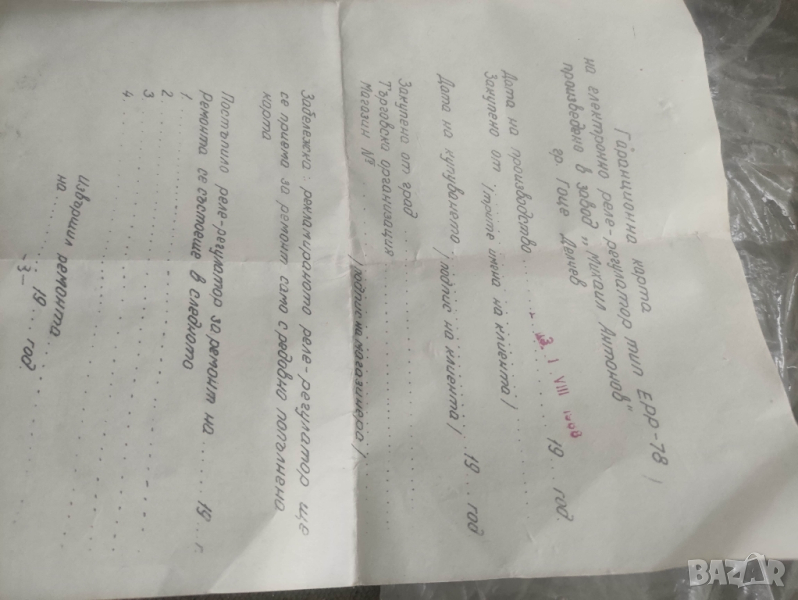 Гаранционна карта
на електронно реле-регулатор тип ЕРР-78 /
произведено в завод "Михаил Антонов"
гр. Гоце Делчев
Дата на производство ............ 19... год.
Закупено от /трите имена на клиента/
Дата на купуването /подпис на клиента/ 19... год
Закупено от град
Търговска организация
Магазин № ........ /подпис на магазинера/
Забележка: рекламираното реле-регулатор ще
се приема за ремонт само с редовно попълнена
карта
Постъпило реле-регулатор за ремонт на ...... 19... г.
Ремонта се състоеше в следното
1.
2.
3
4.
Извършил ремонта
на ........ 19... год
-3-
BAZAR